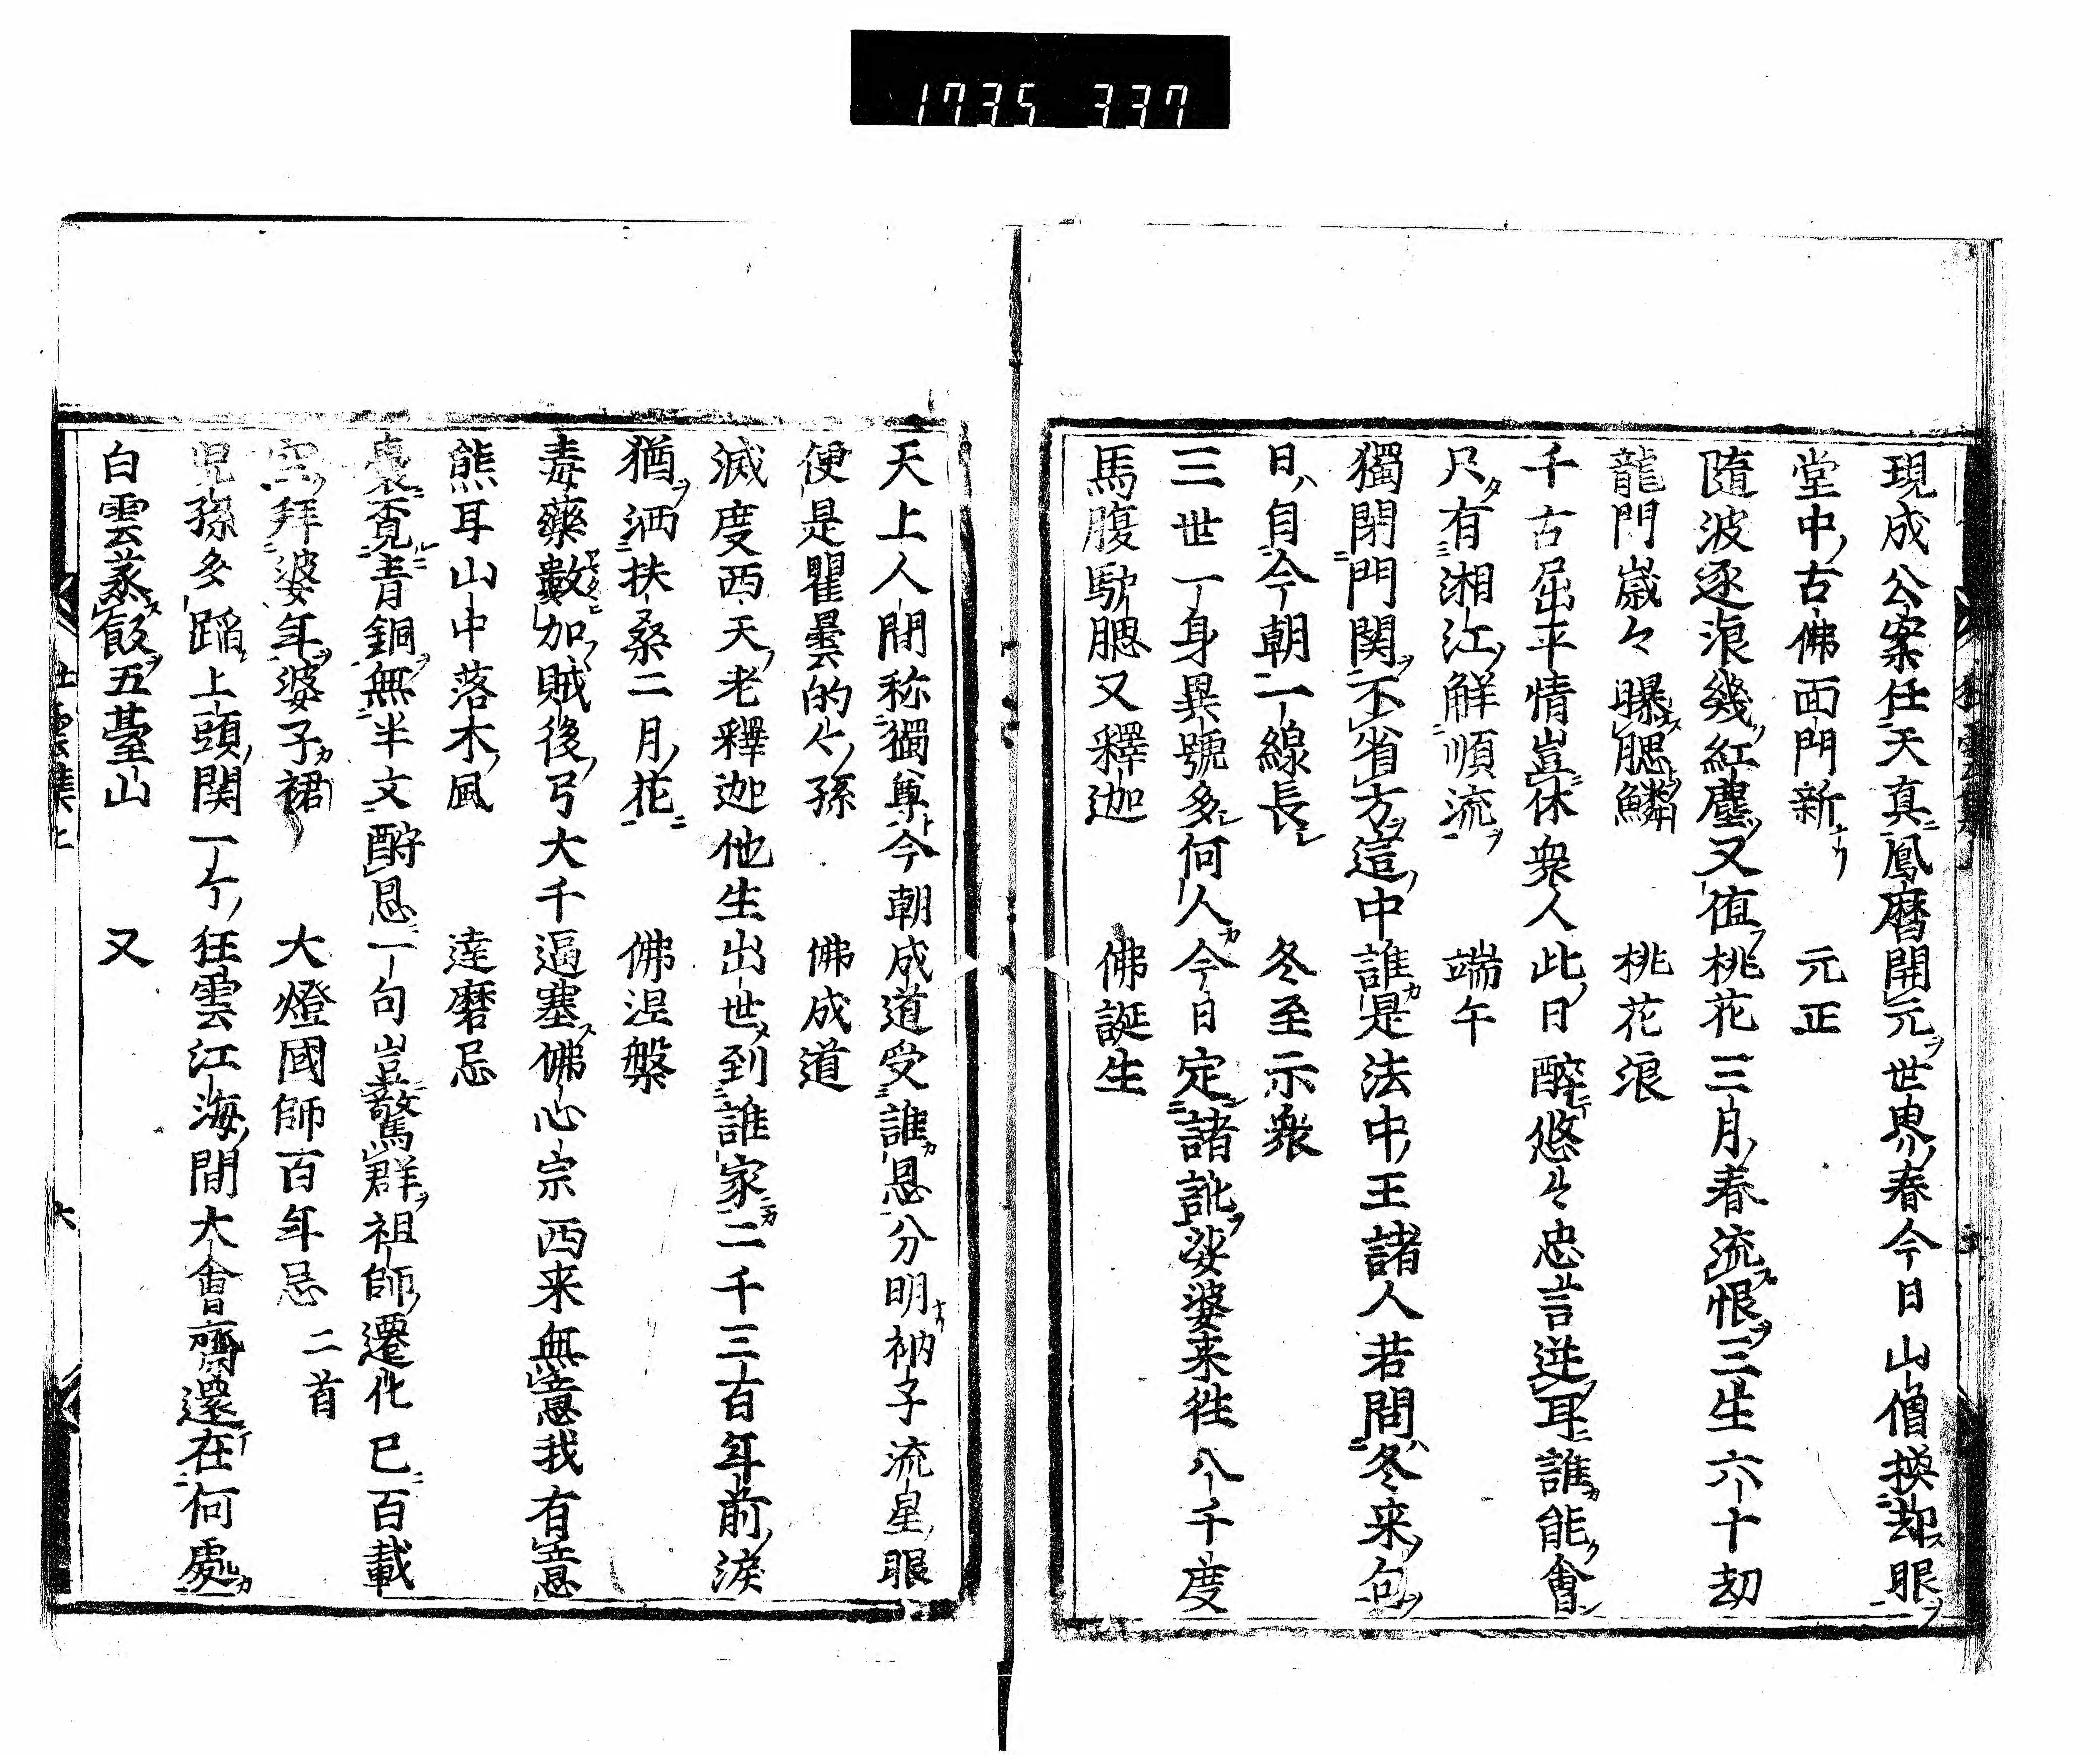 1735 337
現成公案任天真鳳曆開元世界春今日山僧換却眼
堂中古佛面門新 元正
隨波逐浪幾紅塵又値桃花三月春流恨三生六十劫
龍門歲々曝腮鱗 桃花浪
千古屈平情豈休衆人此日醉悠々忠言逆耳誰能會
只有湘江解順流 端午
獨閉門関不省方這中誰是法中王諸人若問冬来句
日自今朝一線長 冬至示衆
三世一身異號多何人今日定諸訛娑婆来往八千度
馬腹馿腮又釋迦 佛誕生
天上人間称獨尊今朝成道受誰恩分明衲子流星眼
便是瞿曇的々孫 佛成道
滅度西天老釋迦他生出世到誰家二千三百年前涙
猶洒扶桑二月花 佛涅槃
毒藥數加賊後弓大千逼塞佛心宗西来無意我有意
熊耳山中落木風 達磨忌
青銅無半文酧恩一句豈驚群祖師遷化已百載
拜婆年婆子裙 大燈國師百年忌 二首
児孫多蹈上頭関一々狂雲江海間大會齋還在何處
白雲蒸飯五䑓山 又
狂雲集上 六